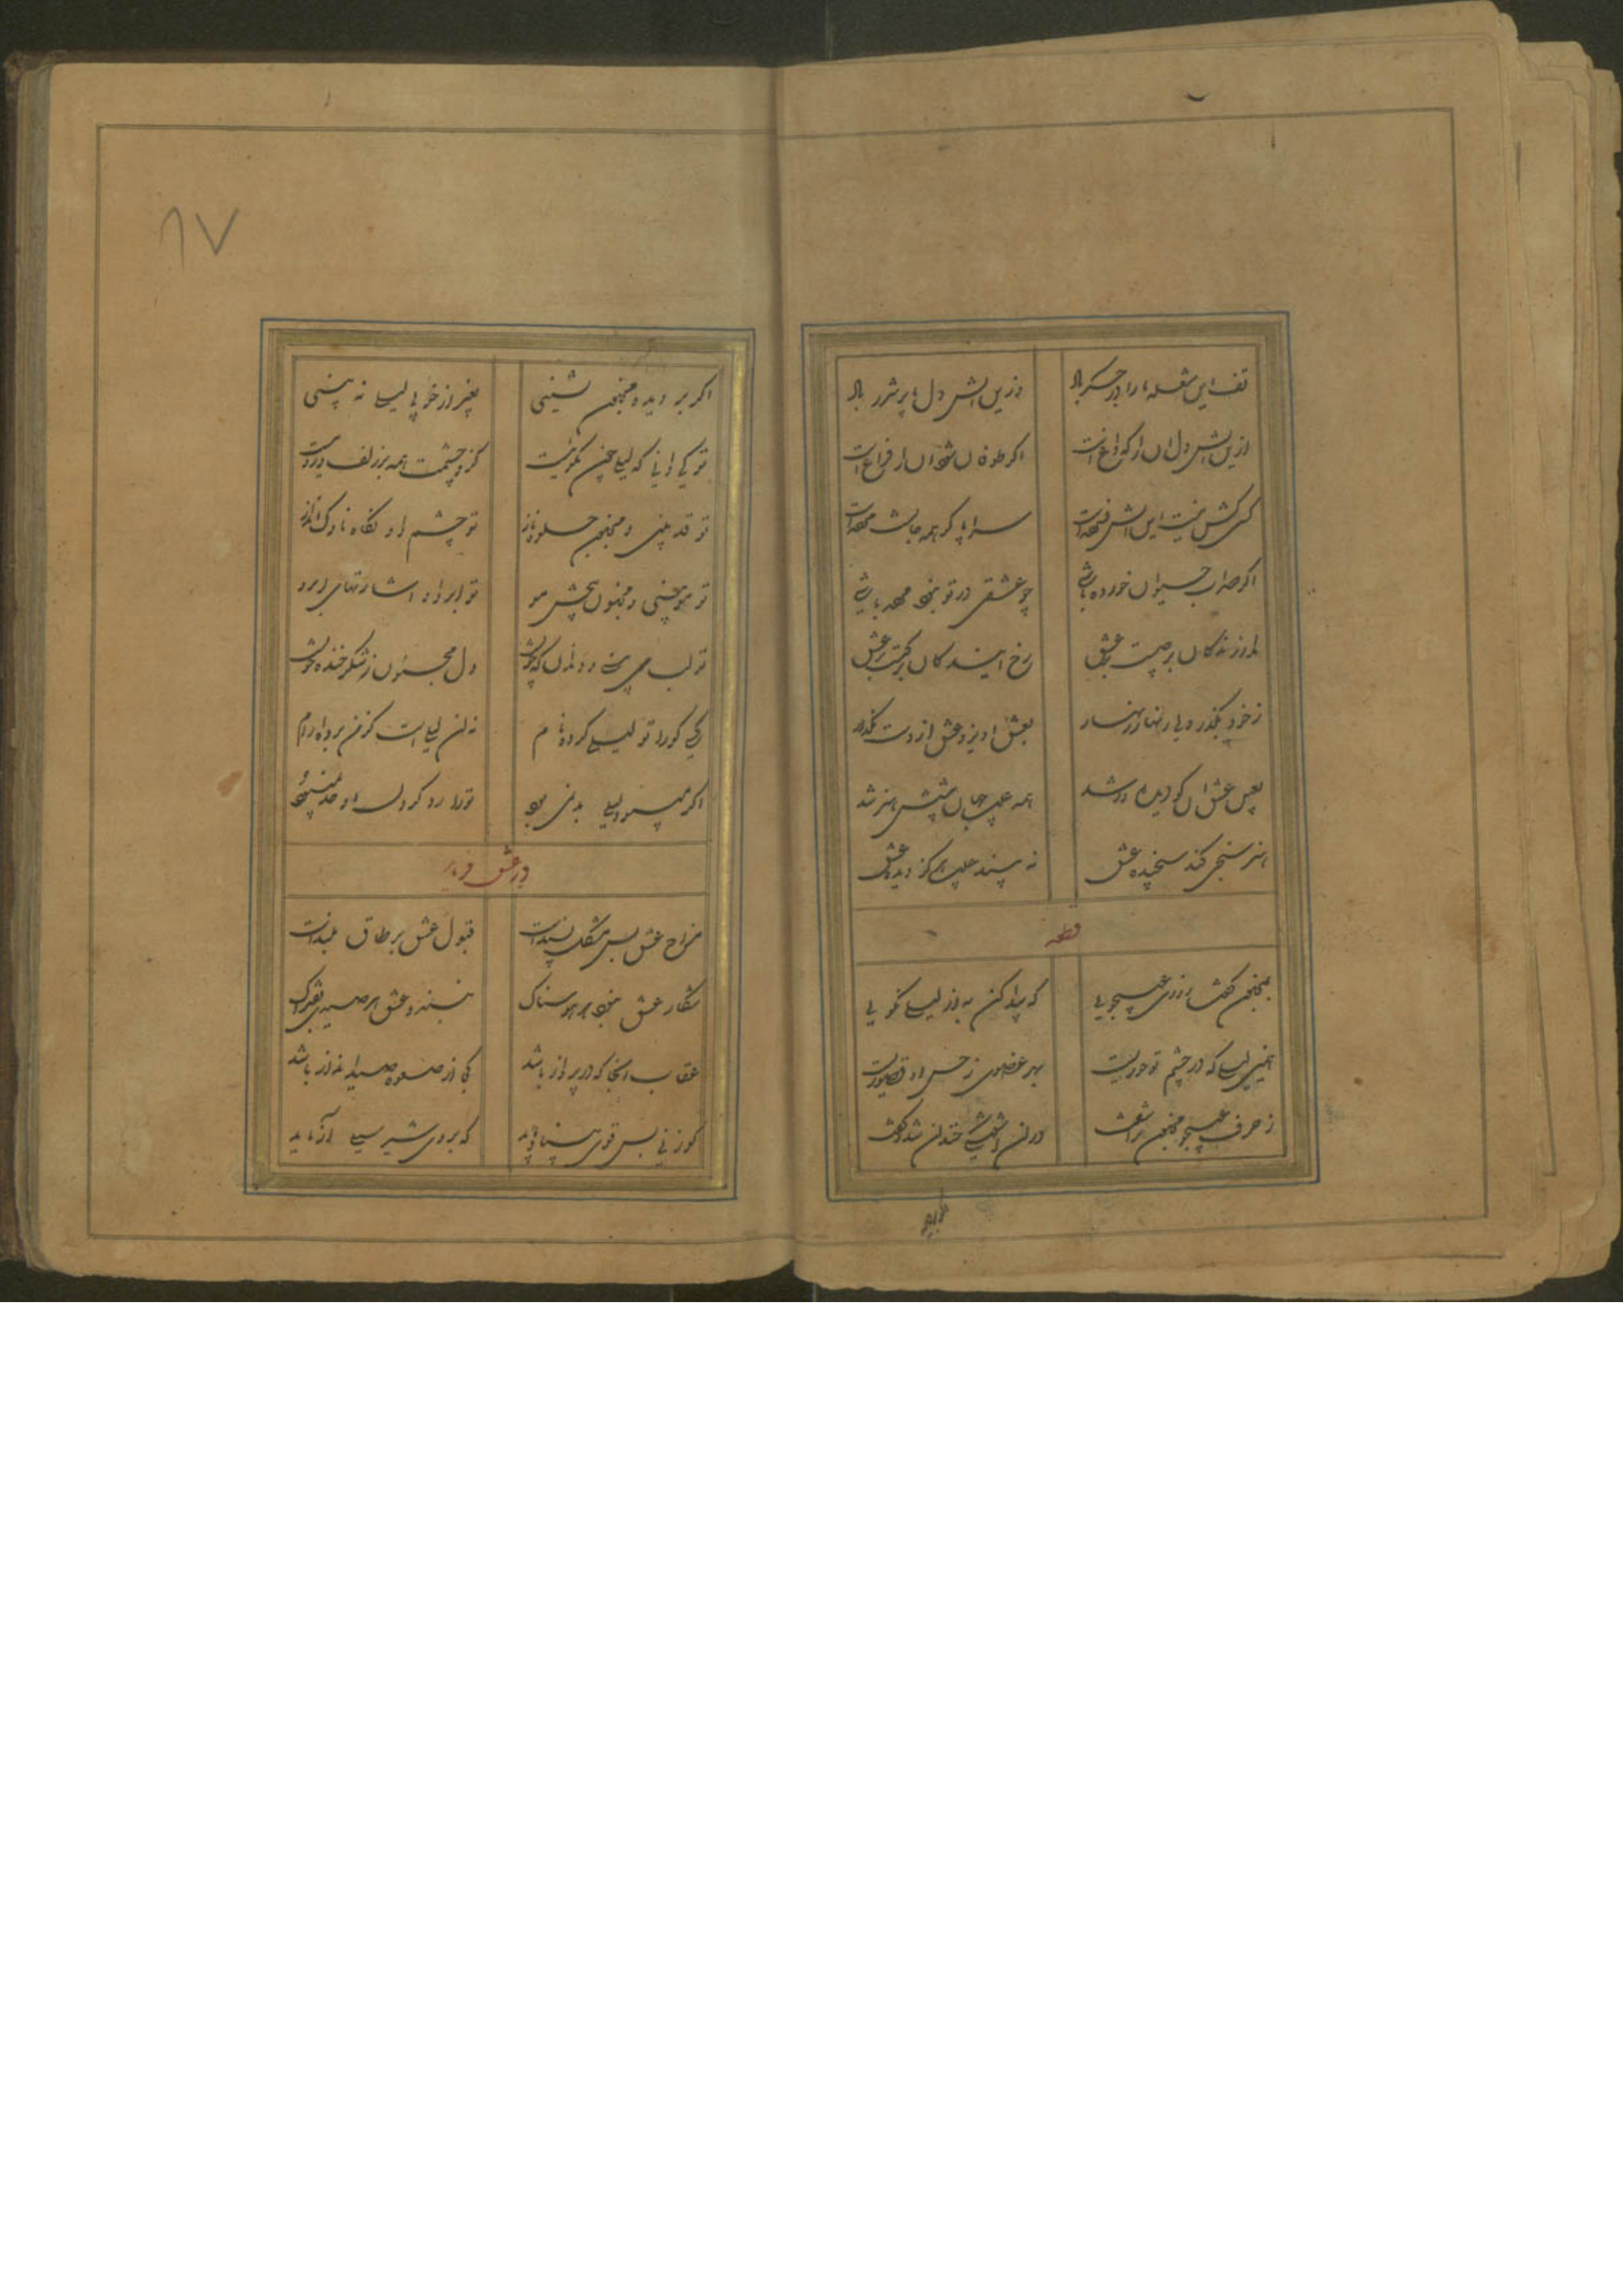 تف این شعله ما را در جگر باد
ازین آتش دل ما پر شرر باد
ازین آتش دل آن را که داغ است
اگر طوفان شود آن را فراغ است
کسی کش نیست این آتش فسرده است
سراپا گر همه جان است مرده است
اگر صد آب حیوان خورده باشی
چو عشقی در تو نبود مرده باشی
مدار زندگان بر صیت عشق
رخ آیندگان بر عشق
ز خود بگذر ولی زنهار زنهار
به عشق آویز و عشق از دست مگذار
به عین عشق آن کو دیده ور شد
همه عیب جهان پیشش هنر شد
هنر سنجی کند سنجیده عشق
نه بیند عیب هرگز دیده عشق
قطعه
به مجنون گفت روزی عیب جویی
که پیدا کن به از لیلی نکویی
که لیلی گرچه در چشم تو حوریست
به هر عضوی ز حسن او قصوریست
ز حرف عیب جو مجنون برآشفت
در آن آشفتگی خندان شد و گفت
اگر بر
۸۷
اگر بر دیده مجنون نشینی
بغیر از خوبی لیلی نه بینی
تو کی دانی که لیلی چون نکوئیست
کزو چشمت همین بر زلف و روئیست
تو قد بینی و مجنون جلوه ناز
تو چشم و او نگاه ناوک انداز
تو مو بینی و مجنون پیچش مو
تو ابرو او اشارتهای ابرو
تو لب می بینی و دندان که چونست
دل مجنون ز شکر خنده خونست
کسی کو را تو لیلی کرده نام
نه آن لیلی است کز من برده آرام
اگر می بود لیلی بد نمی بود
ترا رد کردن او حد نمی بود
در عشق فرماید
مزاج عشق بس مشکل پسند است
قبول عشق بر طاق بلند است
شکار عشق نبود هر هوسناک
نبندد عشق هر صیدی به فتراک
عقاب آنجا که در پرواز باشد
کجا از صعوه صید انداز باشد
گوزنی بس قوی بنیاد باید
که بر وی شیر سیلی آزماید